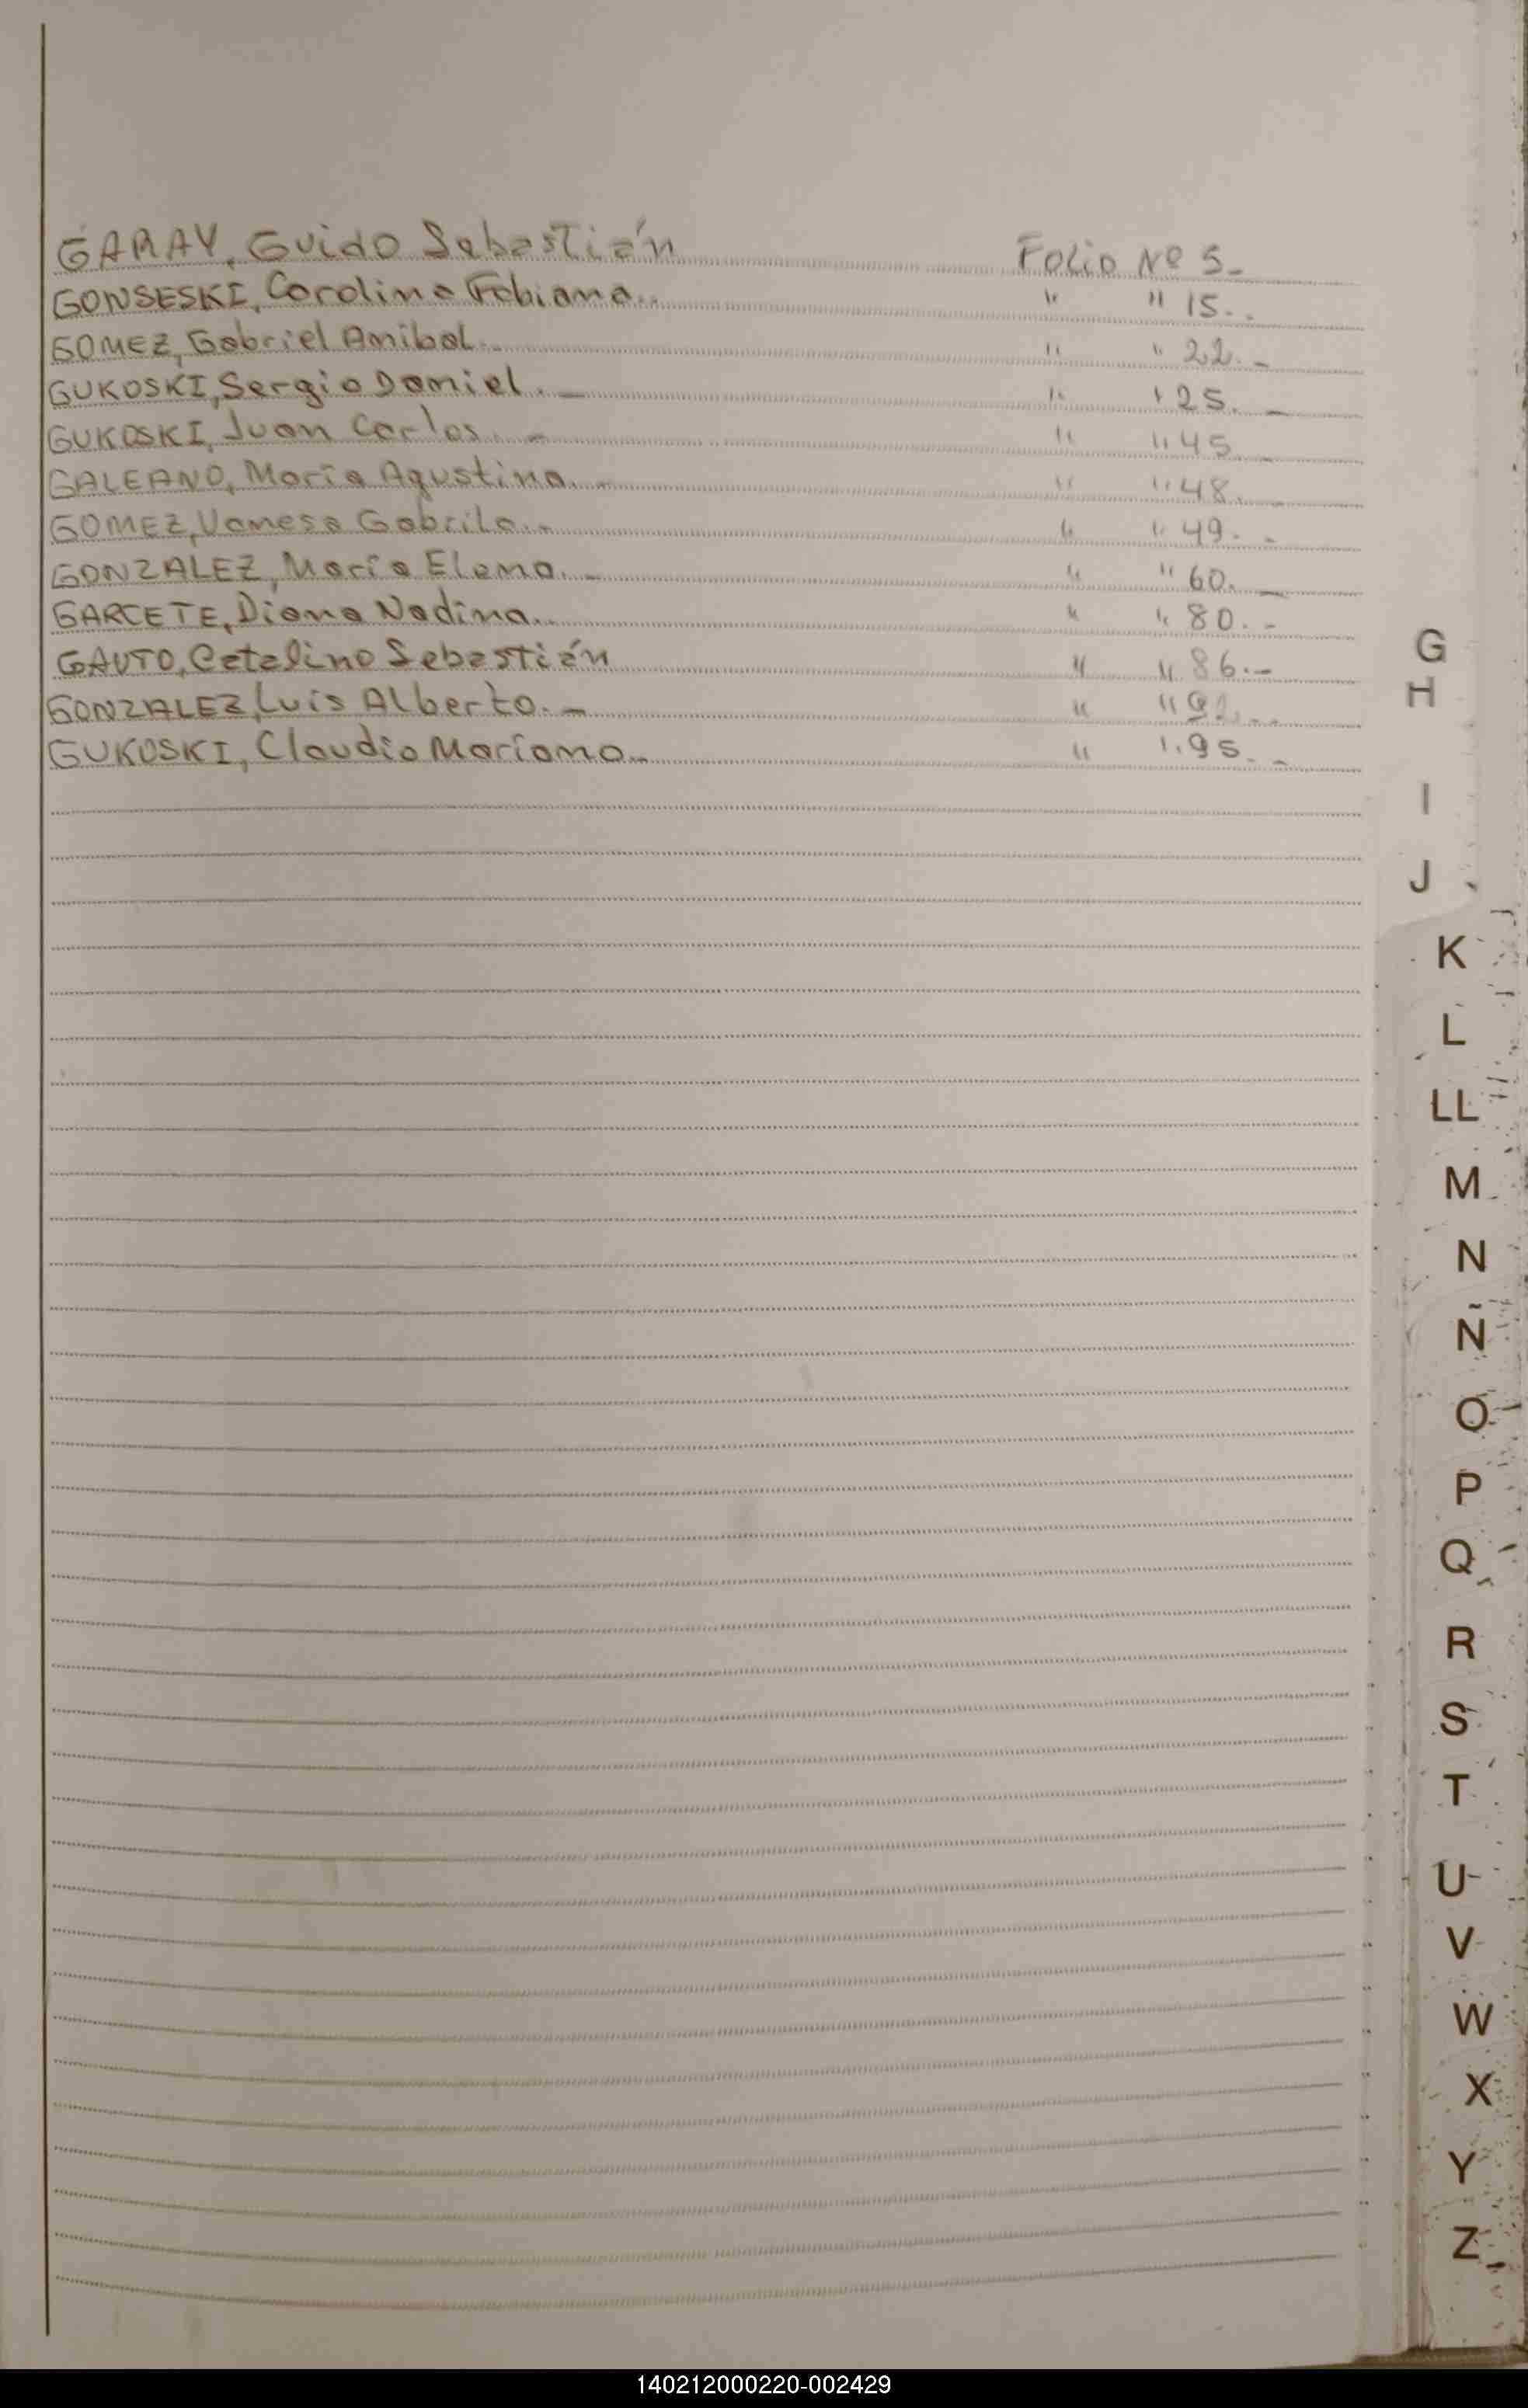 GARAY, Guido Sebastián Folio Nº 5.-
GONSESKI, Carolina Fabiana.. " " 15..
GOMEZ, Gabriel Anibal.- " " 22.-
GUKOSKI, Sergio Daniel.- " " 25.-
GUKOSKI, Juan Carlos.- " " 45.-
GALEANO, María Agustina.- " " 48.-
GOMEZ, Vanesa Gabrila.- " " 49.-
GONZALEZ, María Elena.- " " 60.-
GARCETE, Diana Nadina.. " " 80.-
GAUTO, Catalino Sebastián " " 86.-
GONZALEZ, Luis Alberto.- " "
GUKOSKI, Claudio Mariano.- " " 95.-
G
H
I
J
K
L
LL
M
N
Ñ
O
P
Q
R
S
T
U
V
W
X
Y
Z
140212000220-002429